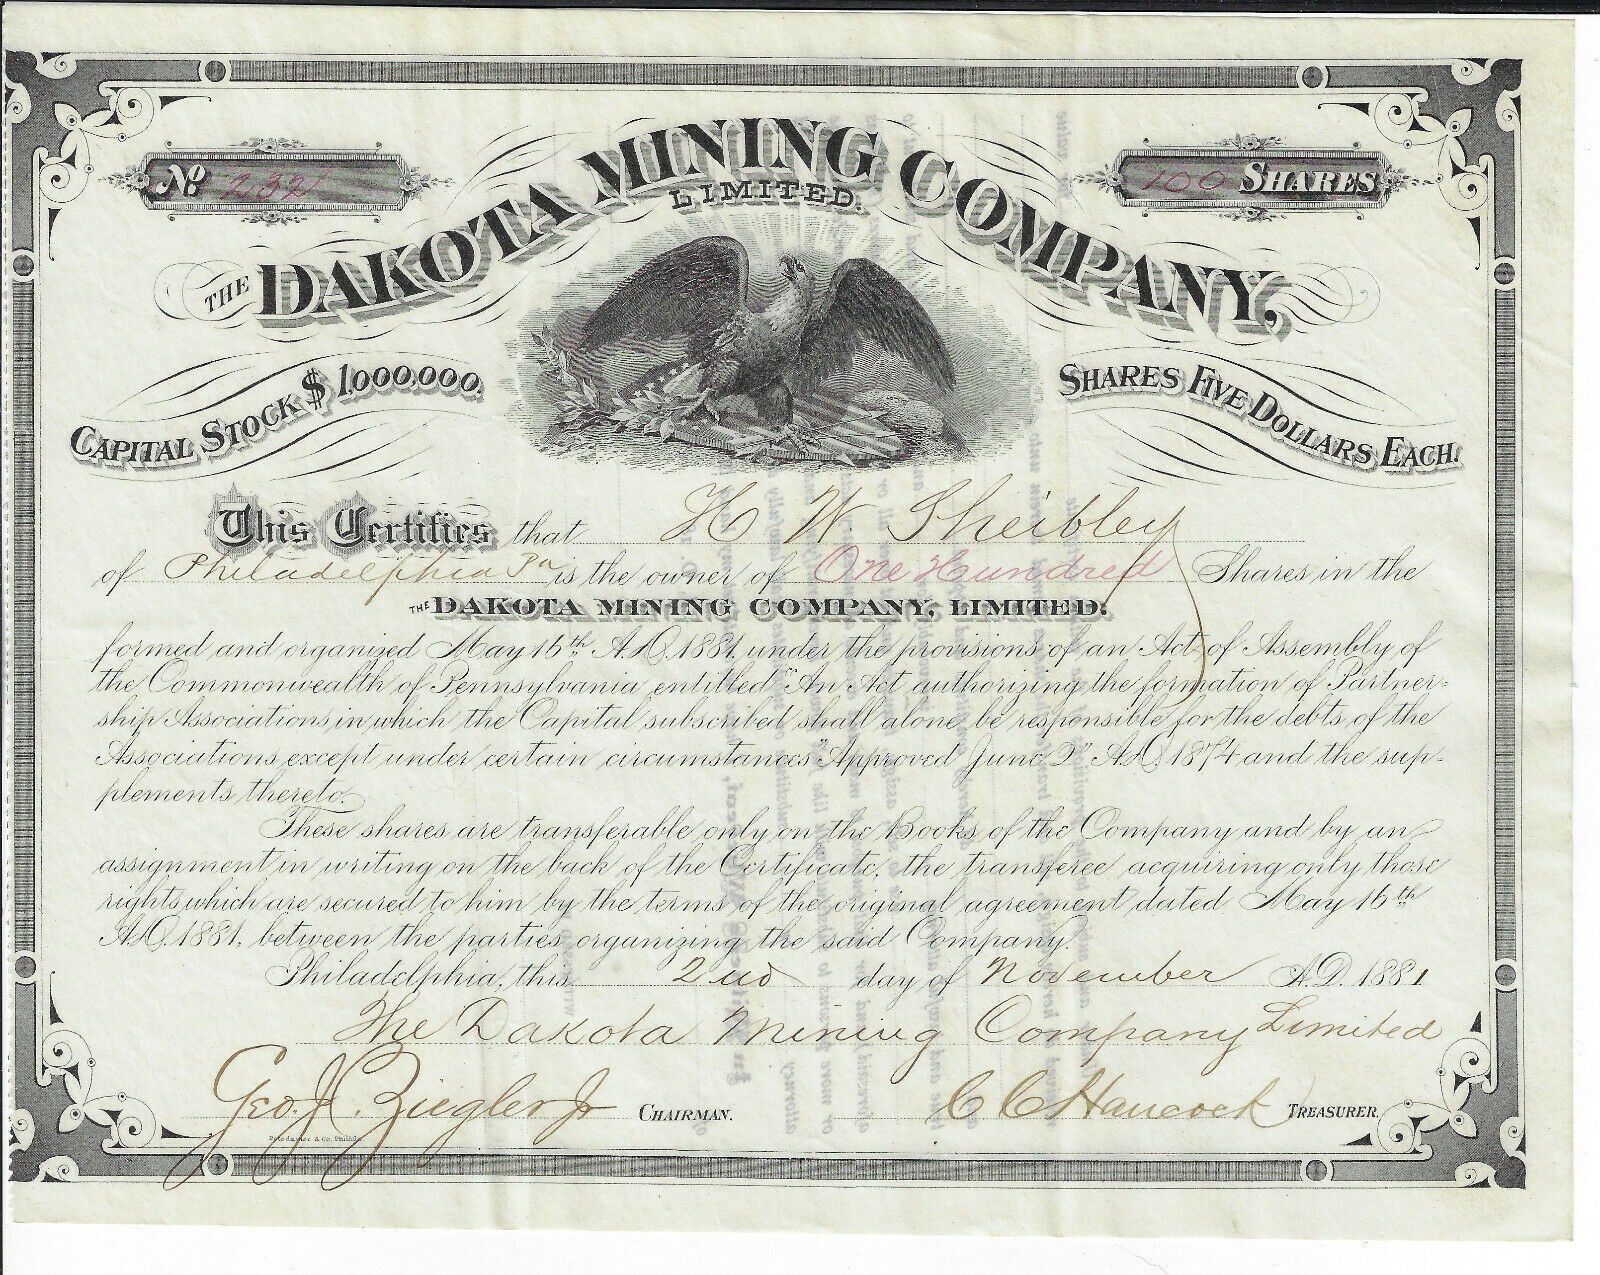 No 2321
100 SHARES
THE DAKOTA MINING COMPANY,
LIMITED.
CAPITAL STOCK $1,000,000.
SHARES FIVE DOLLARS EACH.
This Certifies that H W Sheibley
of Philadelphia Pa is the owner of One Hundred Shares in the
THE DAKOTA MINING COMPANY, LIMITED.
formed and organized May 16th A.D. 1881, under the provisions of an Act of Assembly of
the Commonwealth of Pennsylvania entitled "An Act authorizing the formation of Partner-
ship Associations in which the Capital subscribed shall alone be responsible for the debts of the
Associations except under certain circumstances" Approved June 2" A.D. 1874 and the sup-
plements thereto.
These shares are transferable only on the Books of the Company and by an
assignment in writing on the back of the Certificate, the transferee acquiring only those
rights which are secured to him by the terms of the original agreement dated May 16th
A.D. 1881, between the parties organizing the said Company.
Philadelphia, this 2nd day of November A.D. 1881
The Dakota Mining Company Limited
Geo. J. Ziegler Jr CHAIRMAN.
C C Hancock TREASURER.